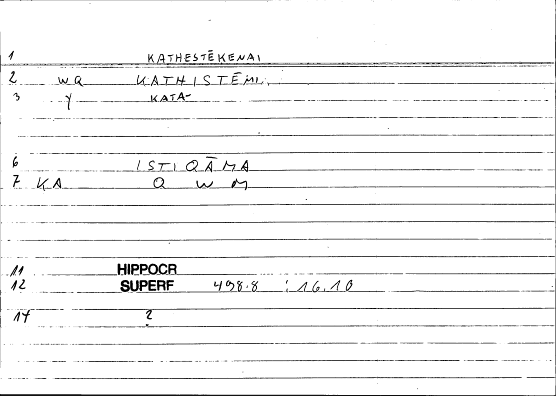 1 KATHESTĒKENAI
2 WQ KATHISTĒMI
3 Y KATA-
6 ISTIQĀMA
7 KA Q W M
11 HIPPOCR
12 SUPERF 498.8 : 16.10
17 ?